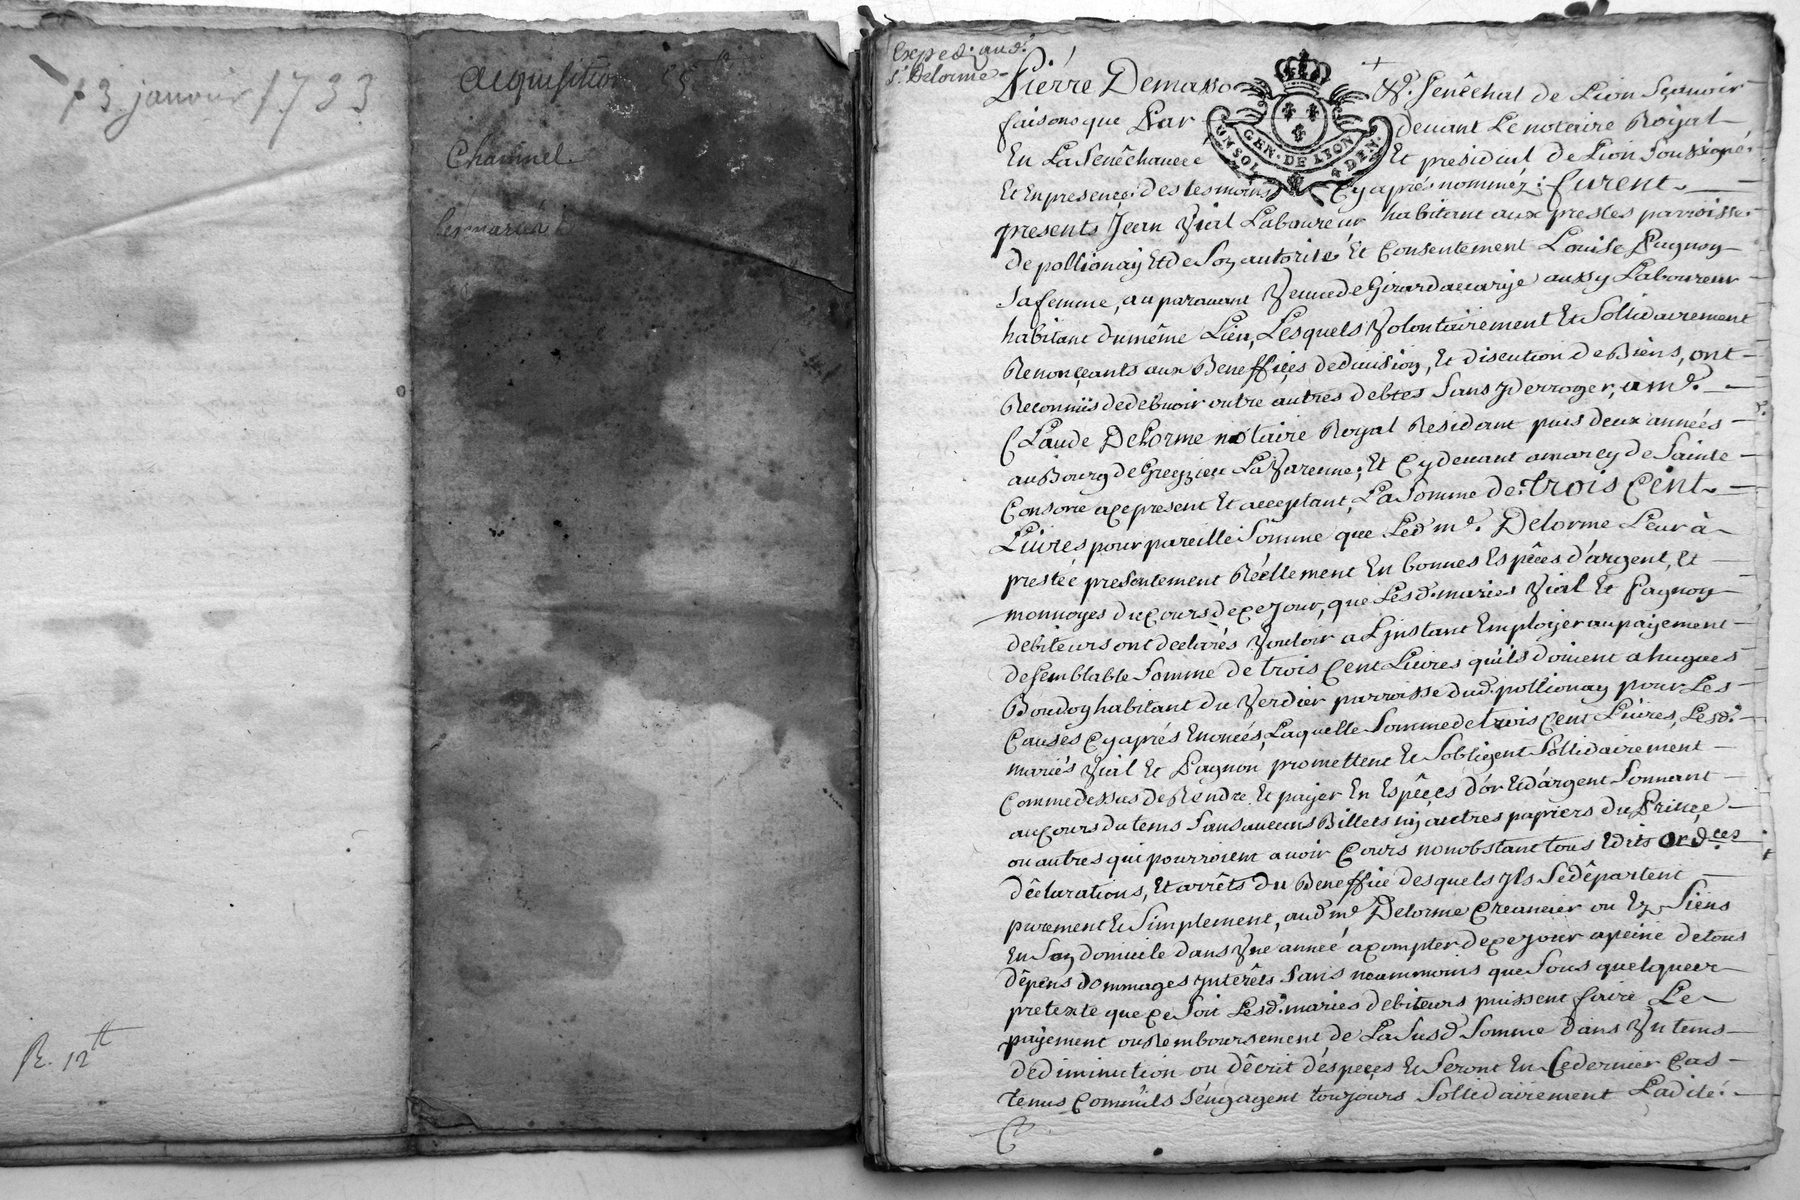 13 janvier 1733
R. 12 tt
acquisition
Channel
les mariés
Exped. aud.
Sr. Delorme
Pierre Demasso Sénéchal de Lion Sçauoir
faisons que Par deuant Le notaire Royal
En La Senêchaucée Et presidial de Lion Soussigné
Et En presence des tesmoins Cy aprés nommez: furent
GEN. DE LYON
UN SOL
4 DEN.
presents Jean Vial Laboureur habitant aux presles parroisse
de pollionaÿ Et de Son autorité Et Consentement Louise Pagnon
Sa femme, au parauant Veuue de Girard accarije aussy Laboureur
habitant du même Lieu, Lesquels Volontairement Et Sollidairement
Renonçants aux Beneffices de diuision, Et discution de Biens, ont
Reconnüs de debuoir outre autres debtes Sans y derroger, a me.
Claude Delorme notaire Royal Residant puis deux années
au Bourg de Grezieu La Varenne, Et Cy deuant a marcy de Sainte
Consorce ace present Et acceptant, La Somme de trois Cent
Liures pour pareille Somme que Led. me. Delorme Leur à
prestée presentement Réellement En bonnes Espéces d'argent, Et
monnoyes du cours de ce jour, que Lesd. mariés Vial Et Pagnon
debiteurs ont declarés Vouloir a L'jnstant Emploijer au paÿement
de Semblable Somme de trois Cent Liures qu'ils doiuent a hugues
Boudoy habitant du Verdier parroisse dud. pollionaÿ pour Les
Causes Cy aprés Enoncés, Laquelle Somme de trois Cent Liures, Lesd.
mariés Vial Et Pagnon promettent Et S'obligent Sollidairement
Comme dessus de Rendre Et paÿer En Espêces d'or Et d'argent Sonnant
au Cours du tems Sans aucuns Billets nÿ autres papiers du Prince
ou autres qui pourroient auoir Cours nonobstant tous Edits Ord.ces
déclarations, Et arrêts du Beneffice desquels jls Se départent
purement Et Simplement, aud. me. Delorme Creancier ou Ez Siens
En Son domicile dans Vne année a compter de ce jour a peine de tous
dépens dommages jntérêts Sans neammoins que Sous quelque
pretexte que ce Soit Lesd. mariés debiteurs puissent faire Le
paÿement ou Remboursement de La Susd. Somme dans Vn tems
de diminution ou décrit d'espeçes Et Seront En Ce dernier Cas
tenus Comm'ils S'engagent toujours Sollidairement Ladite